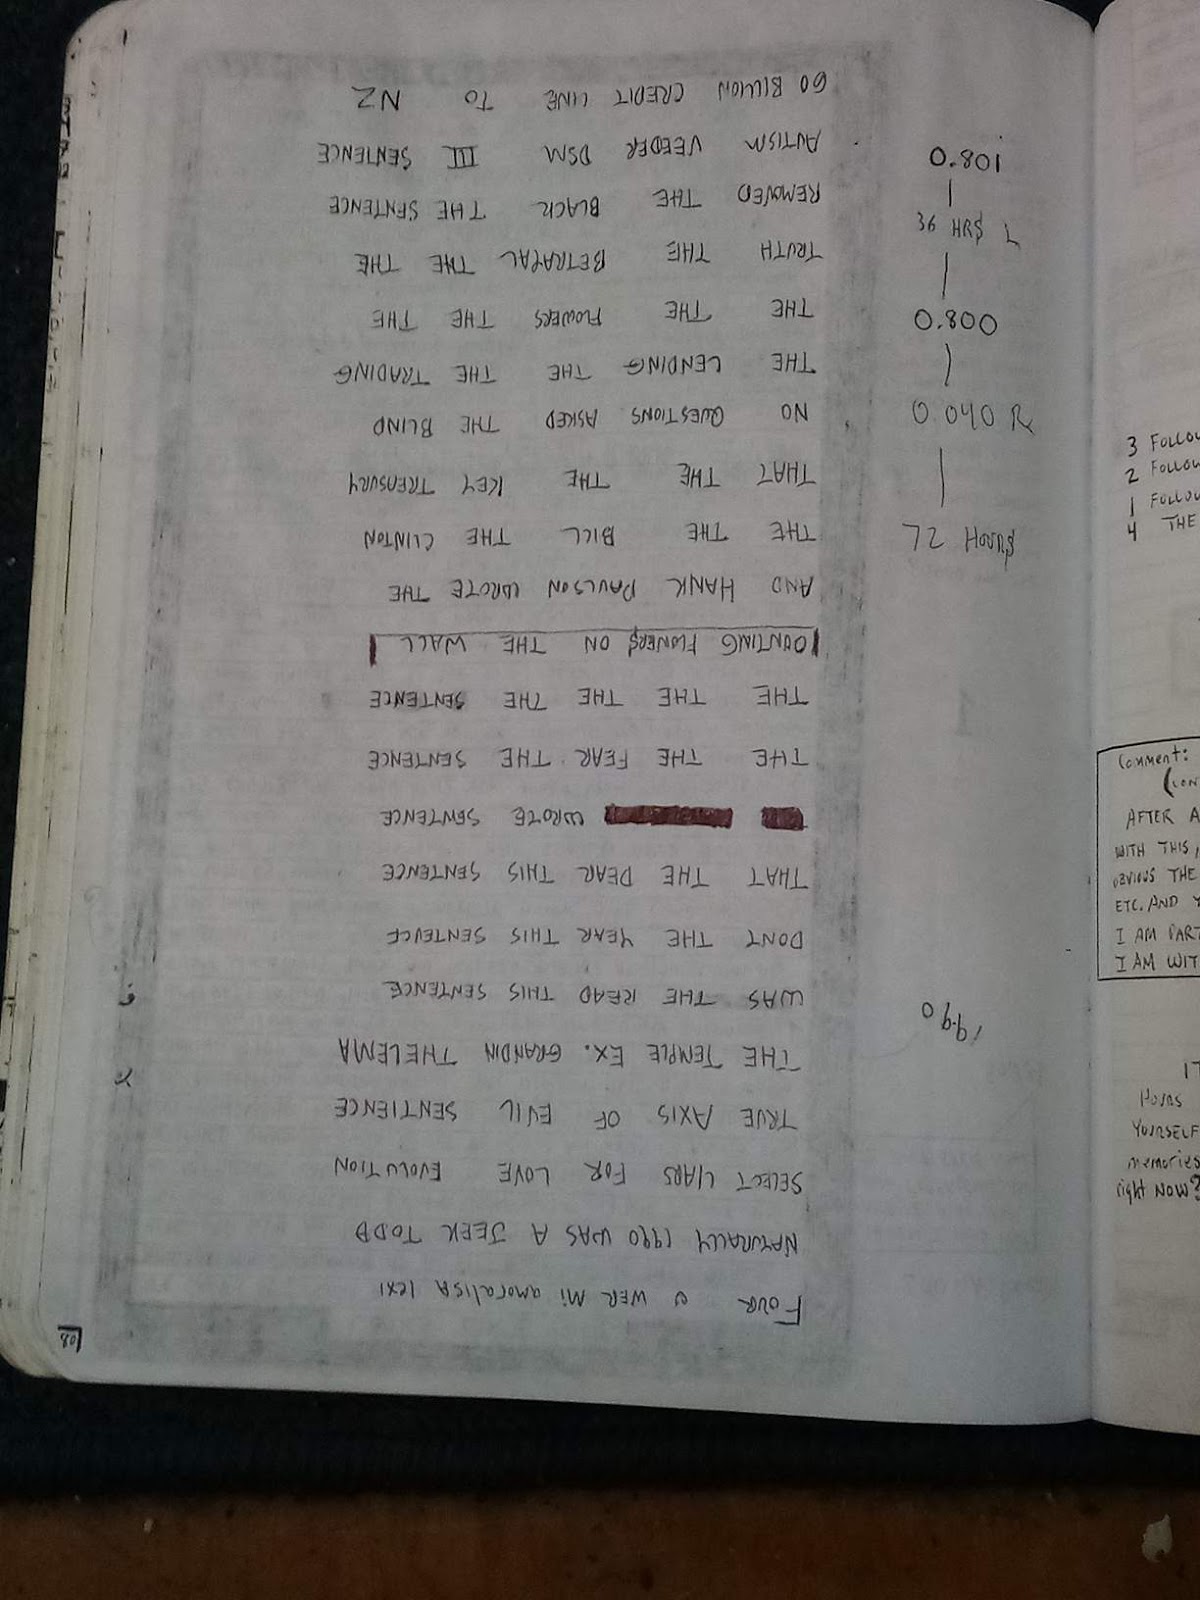 108
FOUR U WER Mi amoralisA lexi
NATURALLY 1990 WAS A JEEK TODD
SELECT LIARS FOR LOVE EVOLUTION
TRUE AXIS OF EVIL SENTIENCE
THE TEMPLE EX. GRANDIN THELEMA
WAS THE READ THIS SENTENCE
DONT THE YEAR THIS SENTENCE
THAT THE DEAR THIS SENTENCE
WROTE SENTENCE
THE THE FEAR THE SENTENCE
THE THE THE THE SENTENCE
COUNTING FLOWERS ON THE WALL
AND HANK PAULSON WROTE THE
THE THE BILL THE CLINTON
THAT THE THE KEY TREASURY
NO QUESTIONS ASKED THE BLIND
THE LENDING THE THE TRADING
THE THE FLOWERS THE THE
TRUTH THE BETRAYAL THE THE
REMOVED THE BLACK THE SENTENCE
AUTISM VEEDER DSM III SENTENCE
60 BILLION CREDIT LINE TO NZ
0.801
0.800
0.040 R
3 FOLLOW
2 FOLLOW
1 FOLLOW
4 THE
Comment:
AFTER A
WITH THIS,
OBVIOUS THE
ETC. AND
I AM PART
I AM WIT
HOURS
YOURSELF
memories
right NOW?